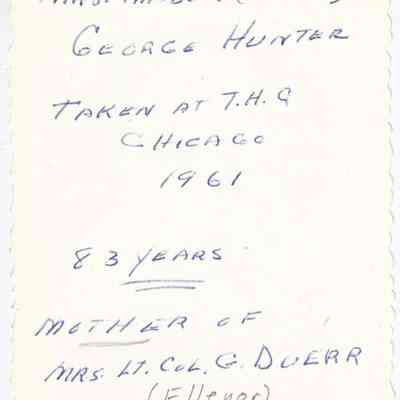 GEORGE HUNTER
TAKEN AT T.H.Q
CHICAGO
1961
83 YEARS
MOTHER OF
MRS. LT. COL. G. DUERR
(Ellenor)